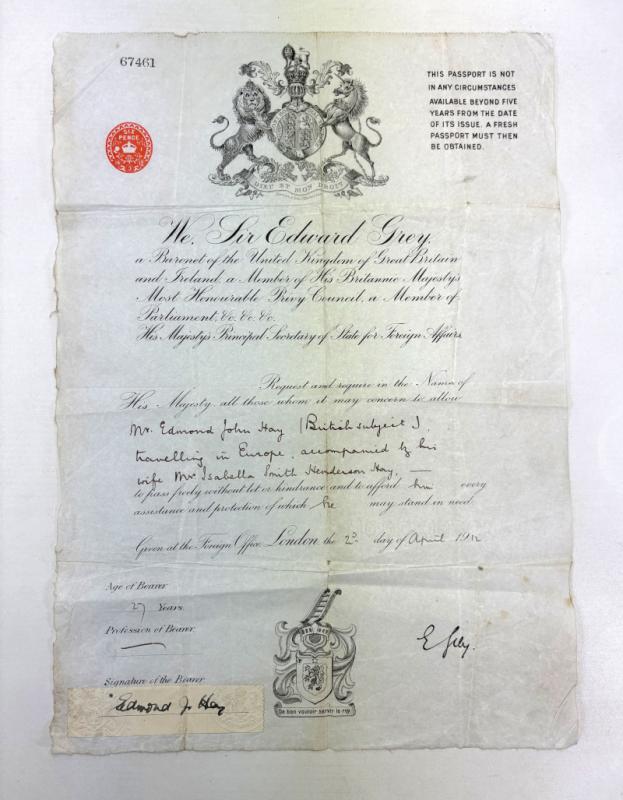 67461
THIS PASSPORT IS NOT
IN ANY CIRCUMSTANCES
AVAILABLE BEYOND FIVE
YEARS FROM THE DATE
OF ITS ISSUE. A FRESH
PASSPORT MUST THEN
BE OBTAINED.
SIX
PENCE
DIEU ET MON DROIT
We, Sir Edward Grey,
a Baronet of the United Kingdom of Great Britain
and Ireland, a Member of His Britannic Majesty's
Most Honourable Privy Council, a Member of
Parliament, &c. &c. &c.
His Majesty's Principal Secretary of State for Foreign Affairs,
Request and require in the Name of
His Majesty, all those whom it may concern to allow
Mr. Edmond John Hay (British subject),
travelling in Europe, accompanied by his
wife Mrs Isabella Smith Henderson Hay,
to pass freely without let or hindrance and to afford him every
assistance and protection of which he may stand in need.
Given at the Foreign Office, London, the 2d day of April 1912
Age of Bearer
27 Years.
Profession of Bearer.
Signature of the Bearer
Edmond J. Hay
De bon vouloir servir le roy
E Grey.